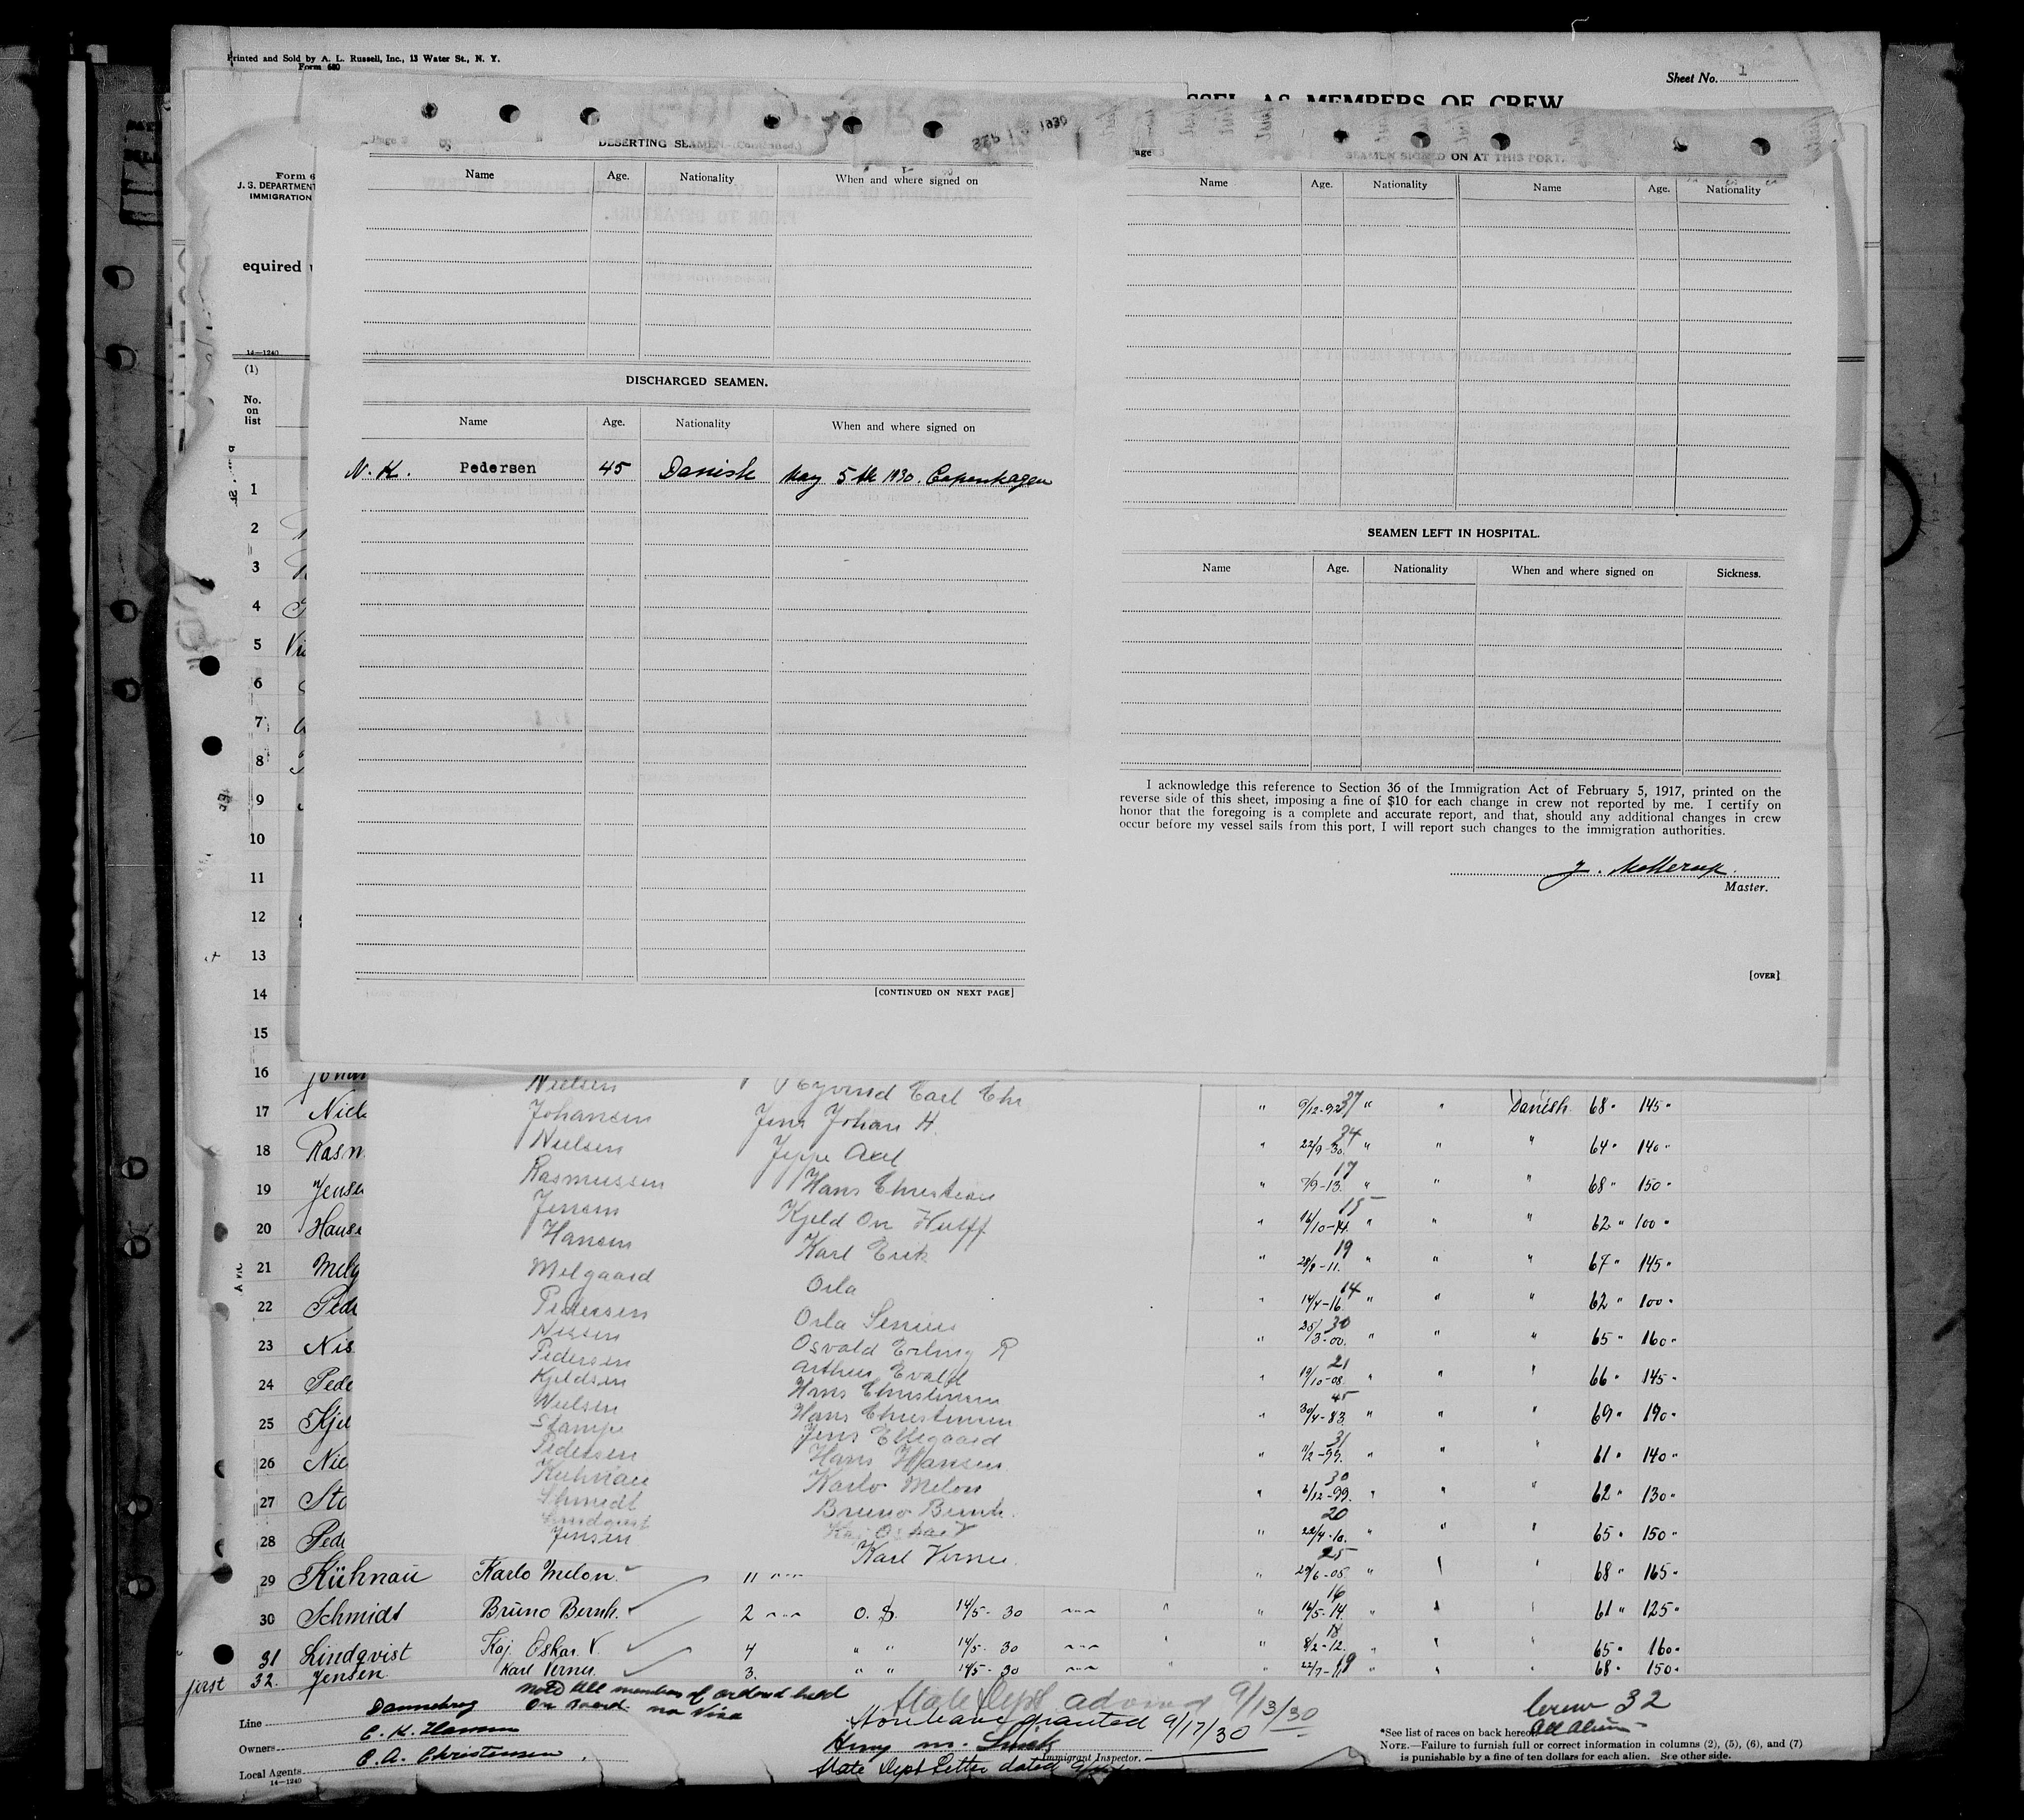 Printed and Sold by A. L. Russell, Inc., 13 Water St., N. Y.
Form 680
Sheet No. 1
AS MEMBERS OF CREW
SEP 1 1930
Page 2
DESERTING SEAMEN (Continued.)
Name Age. Nationality When and where signed on
DISCHARGED SEAMEN.
Name Age. Nationality When and where signed on
N. K. Pedersen 45 Danish May 5th 1930. Copenhagen
[CONTINUED ON NEXT PAGE]
age 3
SEAMEN SIGNED ON AT THIS PORT.
Name Age. Nationality Name Age. Nationality
SEAMEN LEFT IN HOSPITAL.
Name Age. Nationality When and where signed on Sickness.
I acknowledge this reference to Section 36 of the Immigration Act of February 5, 1917, printed on the
reverse side of this sheet, imposing a fine of $10 for each change in crew not reported by me. I certify on
honor that the foregoing is a complete and accurate report, and that, should any additional changes in crew
occur before my vessel sails from this port, I will report such changes to the immigration authorities.
Master.
[OVER]
Form 6
U. S. DEPARTMENT
IMMIGRATION
equired
14—1240
(1)
No.
on
list
1
2
3
4
5
6
7
8
9
10
11
12
13
14
15
16
Nielsen Eyvind Carl Chr
Johansen Jens Johan H.
Nielsen Jeppe Axel
Rasmussen Hans Christian
Jensen Kjeld
Hansen Karl Erik
Melgaard Orla
Pedersen Orla
Nissen Osvald Erling R
Pedersen Arthur Evald
Kjeldsen Hans Christensen
Nielsen Hans Christensen
Stampe Jens Ellegaard
Pedersen Hans Hansen
Kuhnau Karlo Melon
Schmidt Bruno Bernh.
Lindqvist Kaj Oskar V
Jensen Karl Verner
17 Niels " 37 " " Danish 68 " 145 "
18 Rasm " 22/9-30. 34 " " " 64 " 140 "
19 Jense " 7/9-13. 17 " " " 68 " 150 "
20 Hanse " 16/10-14. 15 " " " 62 " 100 "
21 Melg " 28/8-11. 19 " " " 67 " 145 "
22 Pede " 14/4-16. 14 " " " 62 " 100 "
23 Nis " 25/3-00. 30 " " " 65 " 160 "
24 Pede " 19/10-08. 21 " " " 66 " 145 "
25 Kjel " 30/4-83. 45 " " " 69 " 190 "
26 Nie " 31 " " " 61 " 140 "
27 Sta " 6/12-99. 30 " " " 62 " 130 "
28 Ped " 22/4-10. 20 " " " 65 " 150 "
29 Kühnau Karlo Melon 11 " 29/6-05. 25 " " " 68 " 165 "
30 Schmidt Bruno Bernh. 2 O. S. 14/5-30 " " 14/5-14. 16 " " " 61 " 125 "
31 Lindqvist Kaj. Oskar. V. 4 " " 14/5-30 " " 8/2-12. 18 " " " 65 " 160 "
32. Jensen Karl Verner 3. " " 14/5-30 " " 19 " " " 68 " 150 "
Line Dannebrog
Owners C. K. Hansen
Local Agents C. A. Christensen
14—1240
on board no Visa
State Dept advised 9/13/30
Shore leave granted 9/17/30
Immigrant Inspector.
State Dept Letter dated
Crew 32
All Aliens
*See list of races on back hereof.
NOTE.—Failure to furnish full or correct information in columns (2), (5), (6), and (7)
is punishable by a fine of ten dollars for each alien. See other side.